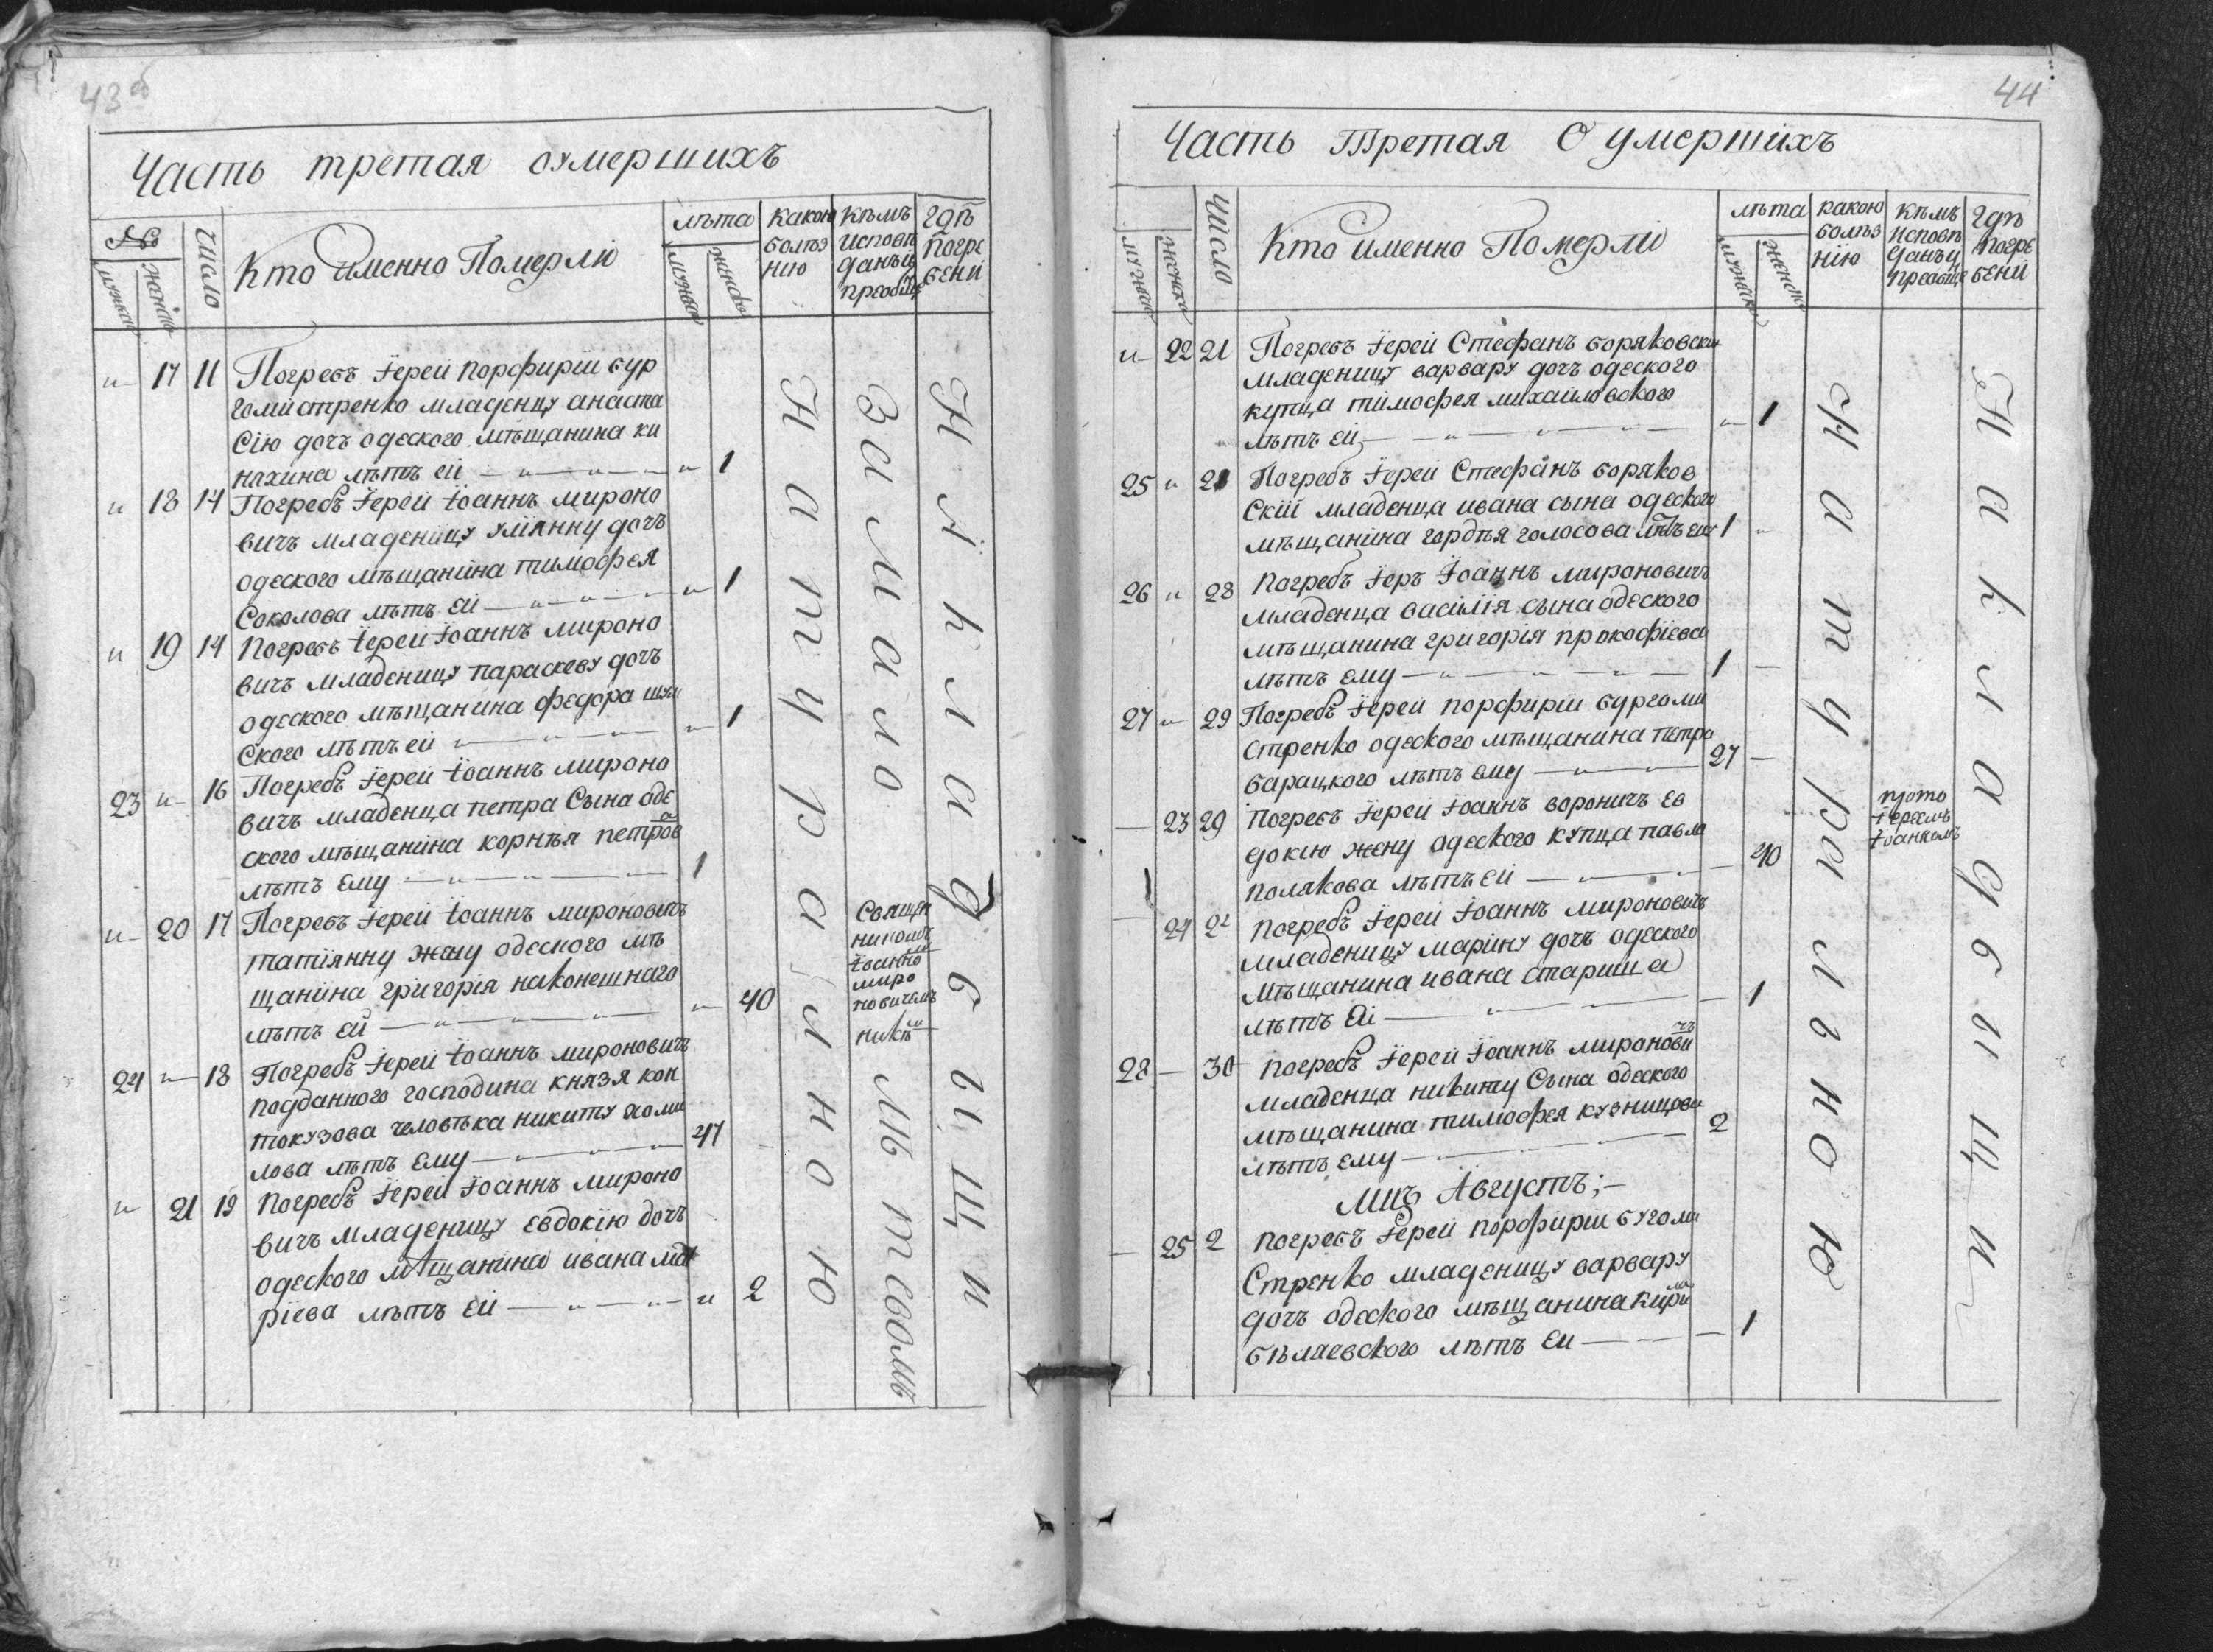 43об
Часть третая оумершихъ
№
мужеска
женска
число
Кто именно Померли
лѣта
мужеска
женска
какою
болѣз
нию
кѣмъ
исповѣ
данъ и
преобще
гдѣ
Погре
бени
и 17 11 Погребъ Іерей порфирій бур
гомистренко младенцу анаста
сію дочъ одеского мѣщанина ки
нахина лѣтъ ей и 1
и 18 14 Погребъ Іерей іоаннъ мироно
вичъ младеницу улиянну дочъ
одеского мѣщанина тимофея
Соколова лѣтъ ей и 1
и 19 14 Погребъ іерей іоаннъ мироно
вичъ младеницу параскеву дочъ
одеского мѣщанина федора
ского лѣтъ ей и 1
23 и 16 Погребъ Іерей іоаннъ мироно
вичъ младенца петра Сына оде
ского мѣщанина корнѣя петрова
лѣтъ ему 1
и 20 17 Погребъ Іерей іоаннъ мироновичъ
татіянну жену одеского мѣ
щанина григорія наконешнаго
лѣтъ ей и 40
24 и 18 Погребъ Іерей іоаннъ мироновичъ
подданного господина князя кон
токузова человѣка никиту
лова лѣтъ ему 47
и 21 19 Погребъ Іерей іоаннъ мироно
вичъ младеницу евдокію дочъ
одеского мѣщанина ивана
ріева лѣтъ ей и 2
Натуральною
За мало
Священ
никомъ
іоанно
миро
новичемъ
лѣтствомъ
На кладбищи
44
Часть Третая О умершихъ
мужеска
женска
Число
Кто именно Померли
лѣта
мужеска
женска
какою
болѣз
нію
кѣмъ
исповѣ
данъ и
преобще
гдѣ
погре
бени
и 22 21 Погребъ Іерей Стефанъ боряковски
младеницу варвару дочъ одеского
купца тимофея михайловского
лѣтъ ей и 1
25 и 21 Погребъ Іерей Стефанъ боряков
скій младенца ивана сына одеского
мѣщанина гордѣя голосова лѣтъ ему 1
26 и 28 Погребъ Іерѣ Іоаннъ мироновичъ
младенца василія сына одеского
мѣщанина григорія прокофіева
лѣтъ ему 1
27 и 29 Погребъ Іерей порфирій бургоми
стренко одеского мѣщанина петра
барацкого лѣтъ ему 27
23 29 Погребъ Іерей іоаннъ вороничъ ев
докію жену одеского купца павла
полякова лѣтъ ей 40
24 22 Погребъ Іерей Іоаннъ мироновичъ
младеницу марину дочъ одеского
мѣщанина ивана
лѣтъ ей 1
28 30 погребъ Іерей Іоаннъ мироновичъ
младенца никиту Сына одеского
мѣщанина тимофея кузницова
лѣтъ ему 2
Мцъ Августъ;
25 2 погребъ Іерей порфирій бугоми
Стренко младеницу варвару
дочъ одеского мѣщанина кирила
бѣляевского лѣтъ ей 1
Натуральною
прото
іереемъ
іоанномъ
На кладбищи